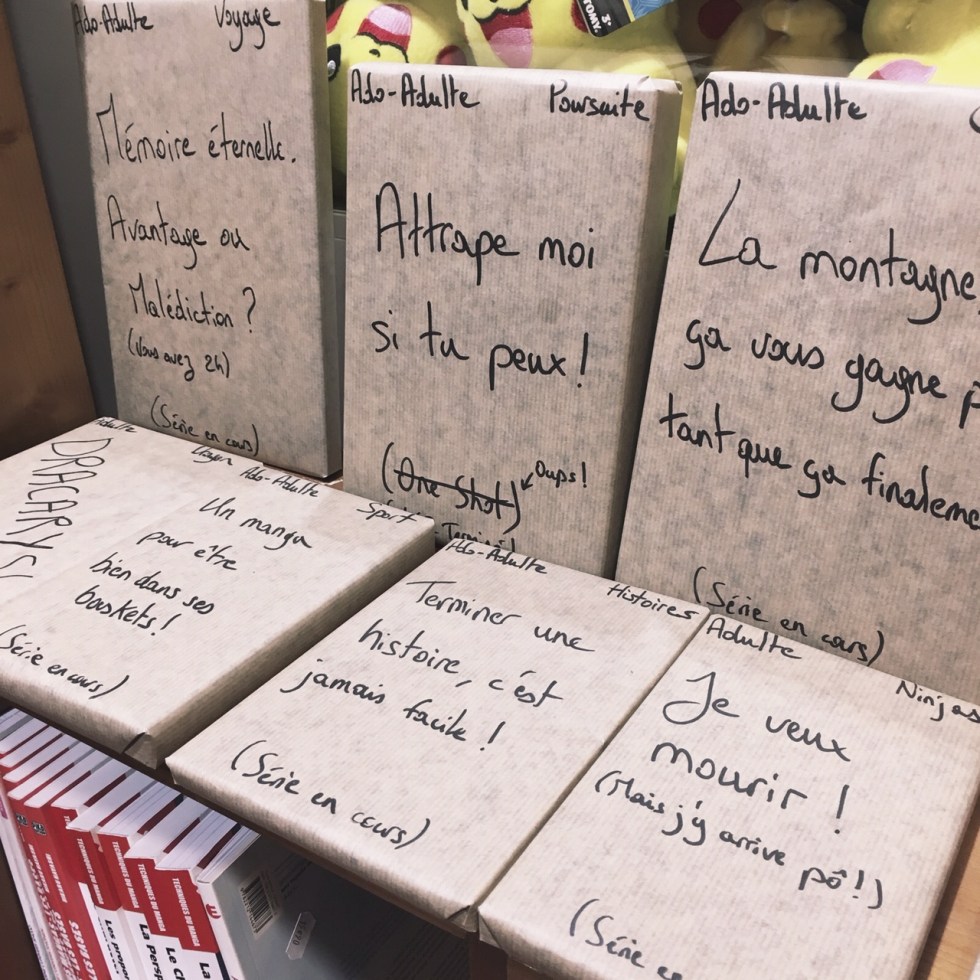 Ado-Adulte Voyage
Mémoire éternelle.
Avantage ou
Malédiction ?
(Vous avez 2h)
(Série en cours)
Ado-Adulte Poursuite
Attrape moi
si tu peux !
(One Shot) Oups!
Terminé!
Ado-Adulte
La montagne,
ça vous gagne
tant que ça
(Série en cours)
Adulte Dragon
DRACARYS
(Série en cours)
Ado-Adulte Sport
Un manga
pour être
bien dans ses
baskets!
Ado-Adulte Histoires
Terminer une
histoire, c'est
jamais facile !
(Série en cours)
Adulte Ninjas
Je veux
mourir !
(Mais j'y arrive pô!)
(Série en
TOMY.
3+
TECHNIQUES DU MANGA
TECHNIQUES DU MANGA
TECHNIQUES DU MANGA
Les
La
Le
La